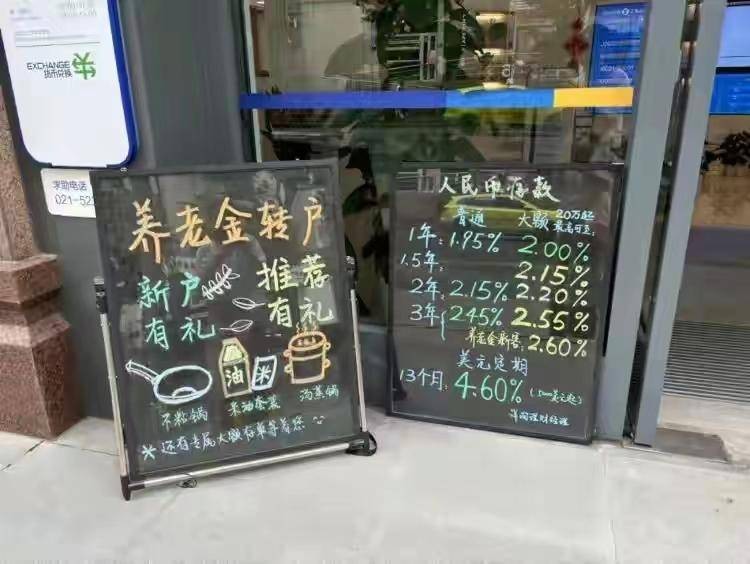 EXCHANGE
货币兑换
求助电话
021-52
养老金转户
新户 推荐
有礼 有礼
油 米
不粘锅 米油套装 汤蒸锅
*还有专属大额存单等着您
人民币存款
普通 大额 20万起
最高可至:
1年: 1.95% 2.00%
1.5年: 2.15%
2年: 2.15% 2.20%
3年 2.45% 2.55%
养老金新客: 2.60%
美元定期
13个月: 4.60%
详询理财经理